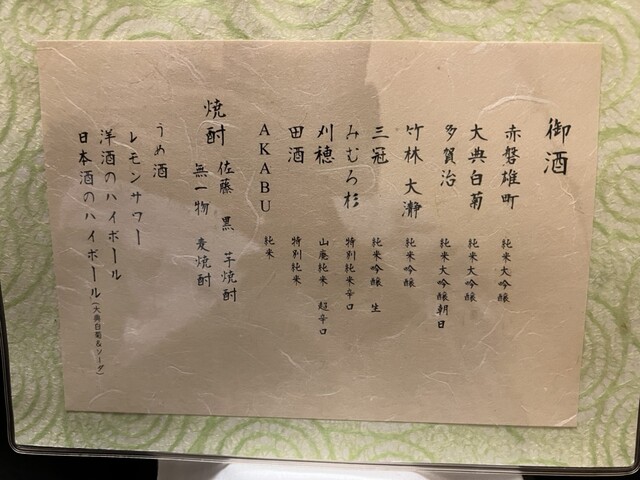 御酒
赤磐雄町 純米大吟醸
大典白菊 純米大吟醸
多賀治 純米大吟醸朝日
竹林 大瀞 純米吟醸
三冠 純米吟醸 生
みむろ杉 特別純米辛口
刈穂 山廃純米 超辛口
田酒 特別純米
AKABU 純米
焼酎
佐藤 黒 芋焼酎
無一物 麦焼酎
うめ酒
レモンサワー
洋酒のハイボール
日本酒のハイボール(大典白菊&ソーダ)